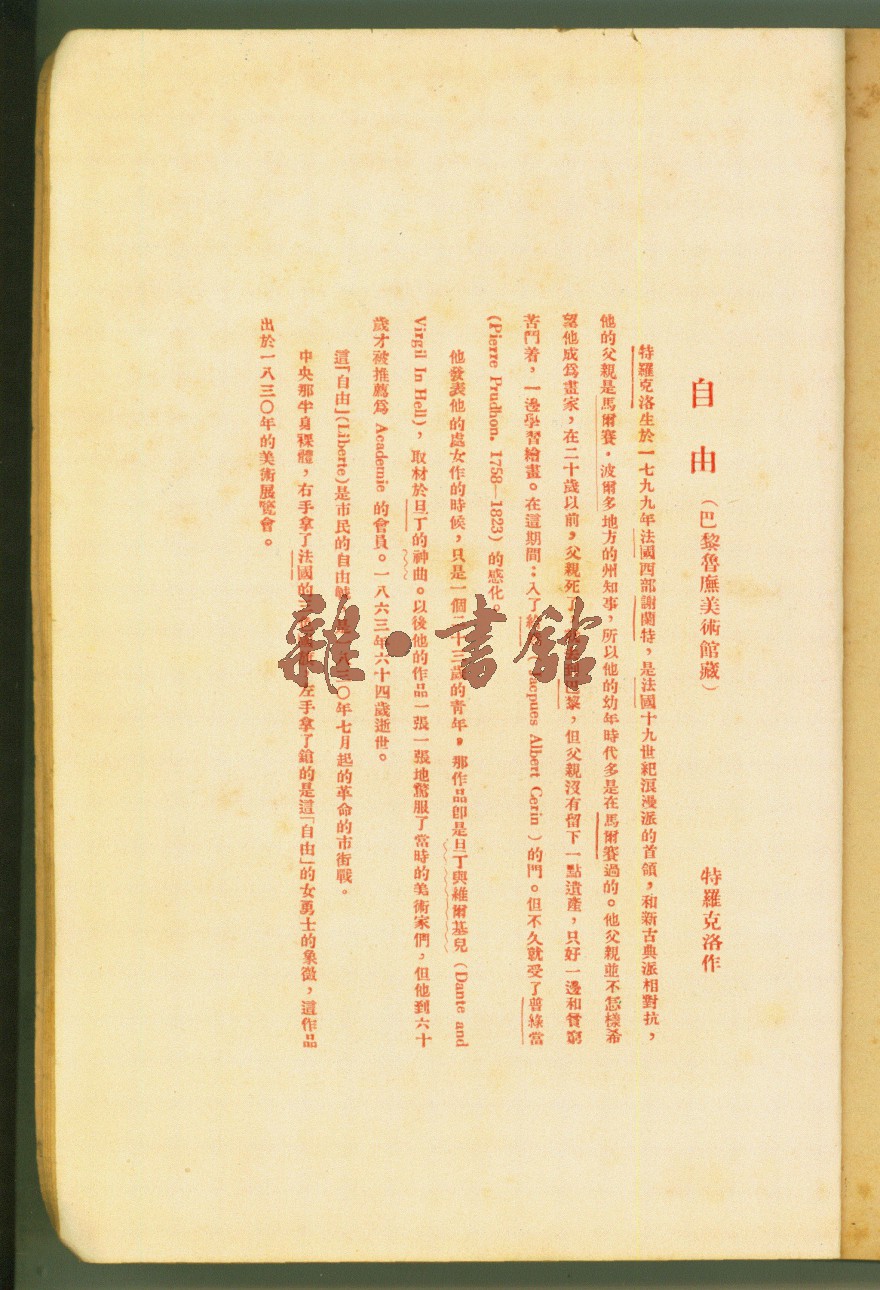 自由（巴黎魯廡美術館藏） 特羅克洛作
特羅克洛生於一七九九年法國西部謝蘭特，是法國十九世紀浪漫派的首領，和新古典派相對抗，
他的父親是馬爾賽・波爾多地方的州知事，所以他的幼年時代多是在馬爾賽過的。他父親並不怎樣希
望他成爲畫家，在二十歲以前，父親死了，巴黎，但父親沒有留下一點遺產，只好一邊和貧窮
苦鬥着，一邊學習繪畫。在這期間：入了（Jacpues Albert Cerin）的門。但不久就受了普綠當
(Pierre Prudhon. 1758—1823) 的感化。
他發表他的處女作的時候，只是一個二十三歲的青年，那作品卽是旦丁與維爾基兒（Dante and
Virgil In Hell)，取材於旦丁的神曲。以後他的作品一張一張地驚服了當時的美術家們，但他到六十
歲才被推薦爲 Academie 的會員。一八六三年六十四歲逝世。
這「自由」(Liberte)是市民的自由〇年七月起的革命的市街戰。
中央那半身裸體，右手拿了法國的左手拿了鎗的是這「自由」的女勇士的象徵，這作品
出於一八三〇年的美術展覽會。
雜・書館